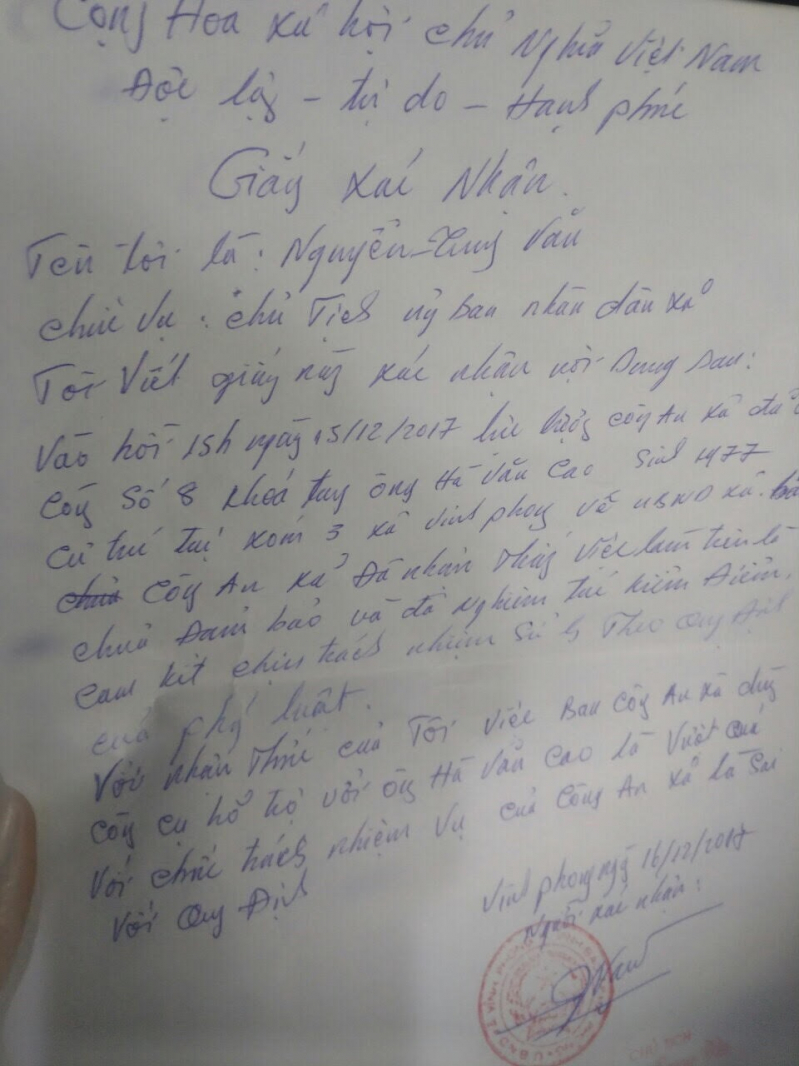 Cộng Hòa xã hội chủ Nghĩa Việt Nam
Độc lập – tự do – Hạnh phúc
Giấy xác Nhận.
Tên tôi là: Nguyễn Văn
chức vụ: chủ Tịch uỷ Ban nhân dân xã
Tôi Viết giấy này xác nhận nội Dung sau:
Vào hồi 15h ngày 15/12/2017 lực lượng công An xã đã
Còng Số 8 khoá tay ông Hà Văn Cao Sinh 1977
Cư trú tại xóm 3 xã Vĩnh phong về UBND xã. bản
Công An xã Đã nhận Thấy Việc làm trên là
chưa Đảm bảo và đã Nghiêm túc kiểm Điểm,
Cam kết chịu trách nhiệm Sử lý Theo Quy Định
của pháp luật.
Với nhận Thức của Tôi Việc Ban Công An xã dùng
công cụ hỗ trợ với ông Hà Văn Cao là Vượt quá
Với chức trách nhiệm vụ của Công An xã là Sai
Với Quy Định
Vĩnh phong ngày 16/12/2017
Người xác nhận:
CHỦ TỊCH